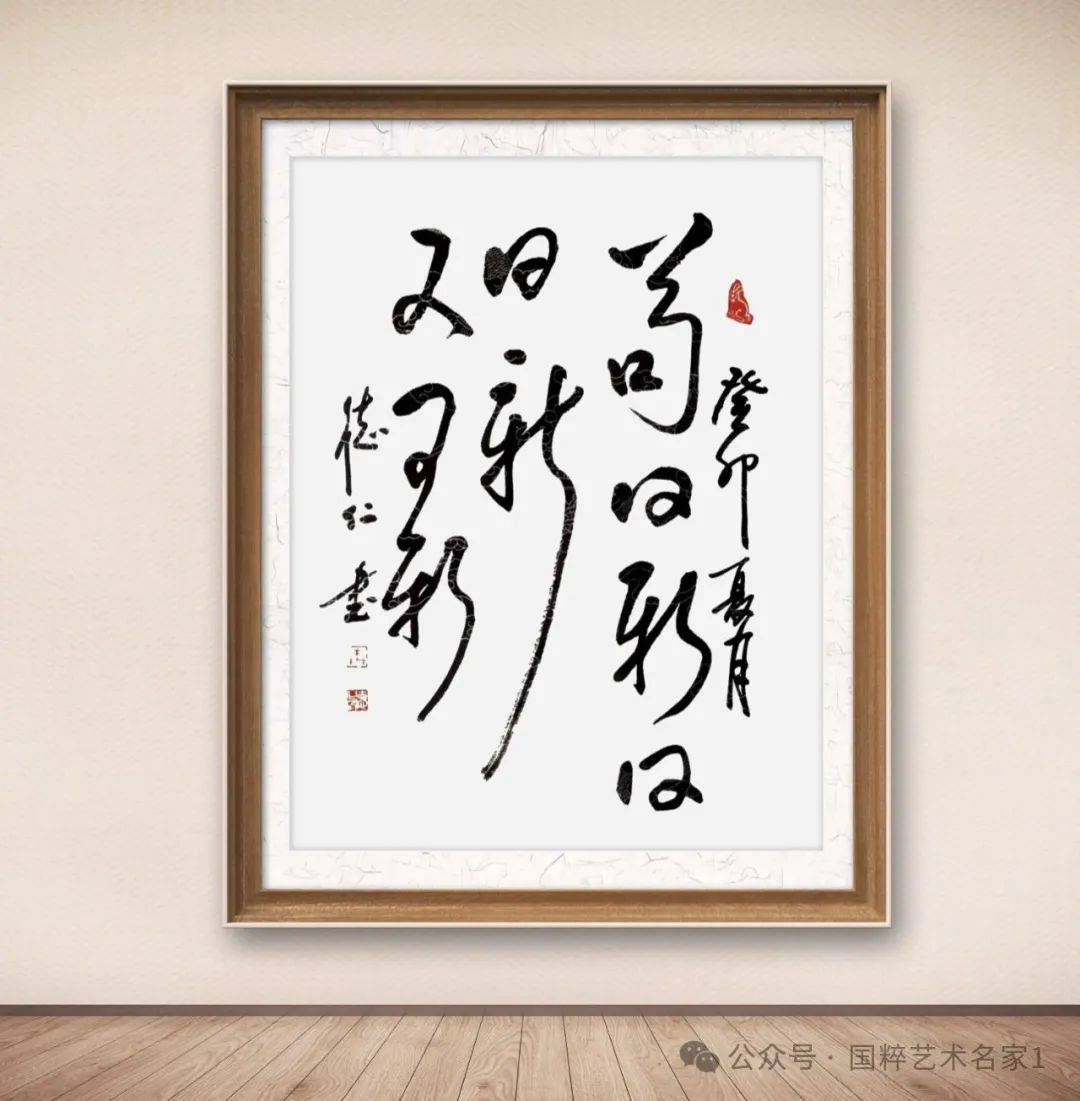 癸卯夏月
苟日新日
日新
又日新
德仁書
公众号 · 国粹艺术名家1